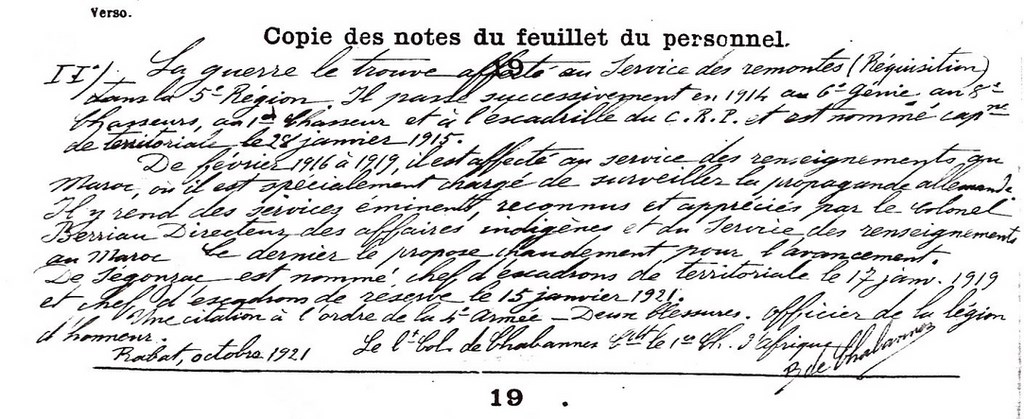 Verso.
Copie des notes du feuillet du personnel.
19
II°/_ La guerre le trouve affecté au Service des remontes (Réquisition)
dans la 5e Région. Il passe successivement en 1914 au 6e Génie au 8e
Chasseurs, au 1er Chasseur et à l'escadrille du C.R.P. et est nommé capne
de territoriale le 28 janvier 1915.
De février 1916 à 1919, il est affecté au service des renseignements au
Maroc, où il est spécialement chargé de surveiller la propagande allemande
Il y rend des services éminents, reconnus et appréciés par le Colonel
Berriau Directeur des affaires indigènes et du Service des renseignements
au Maroc Ce dernier le propose chaudement pour l'avancement.
De Segonzac est nommé chef d'escadrons de territoriale le 17 janv. 1919
et chef d'escadrons de réserve le 15 janvier 1921.
Une citation à l'ordre de la 5e Armée _ Deux blessures. Officier de la légion
d'honneur.
Rabat, octobre 1921 Le Lt Col. de Chabannes Cdt le 1er Ch. d'Afrique
B de Chabannes
19